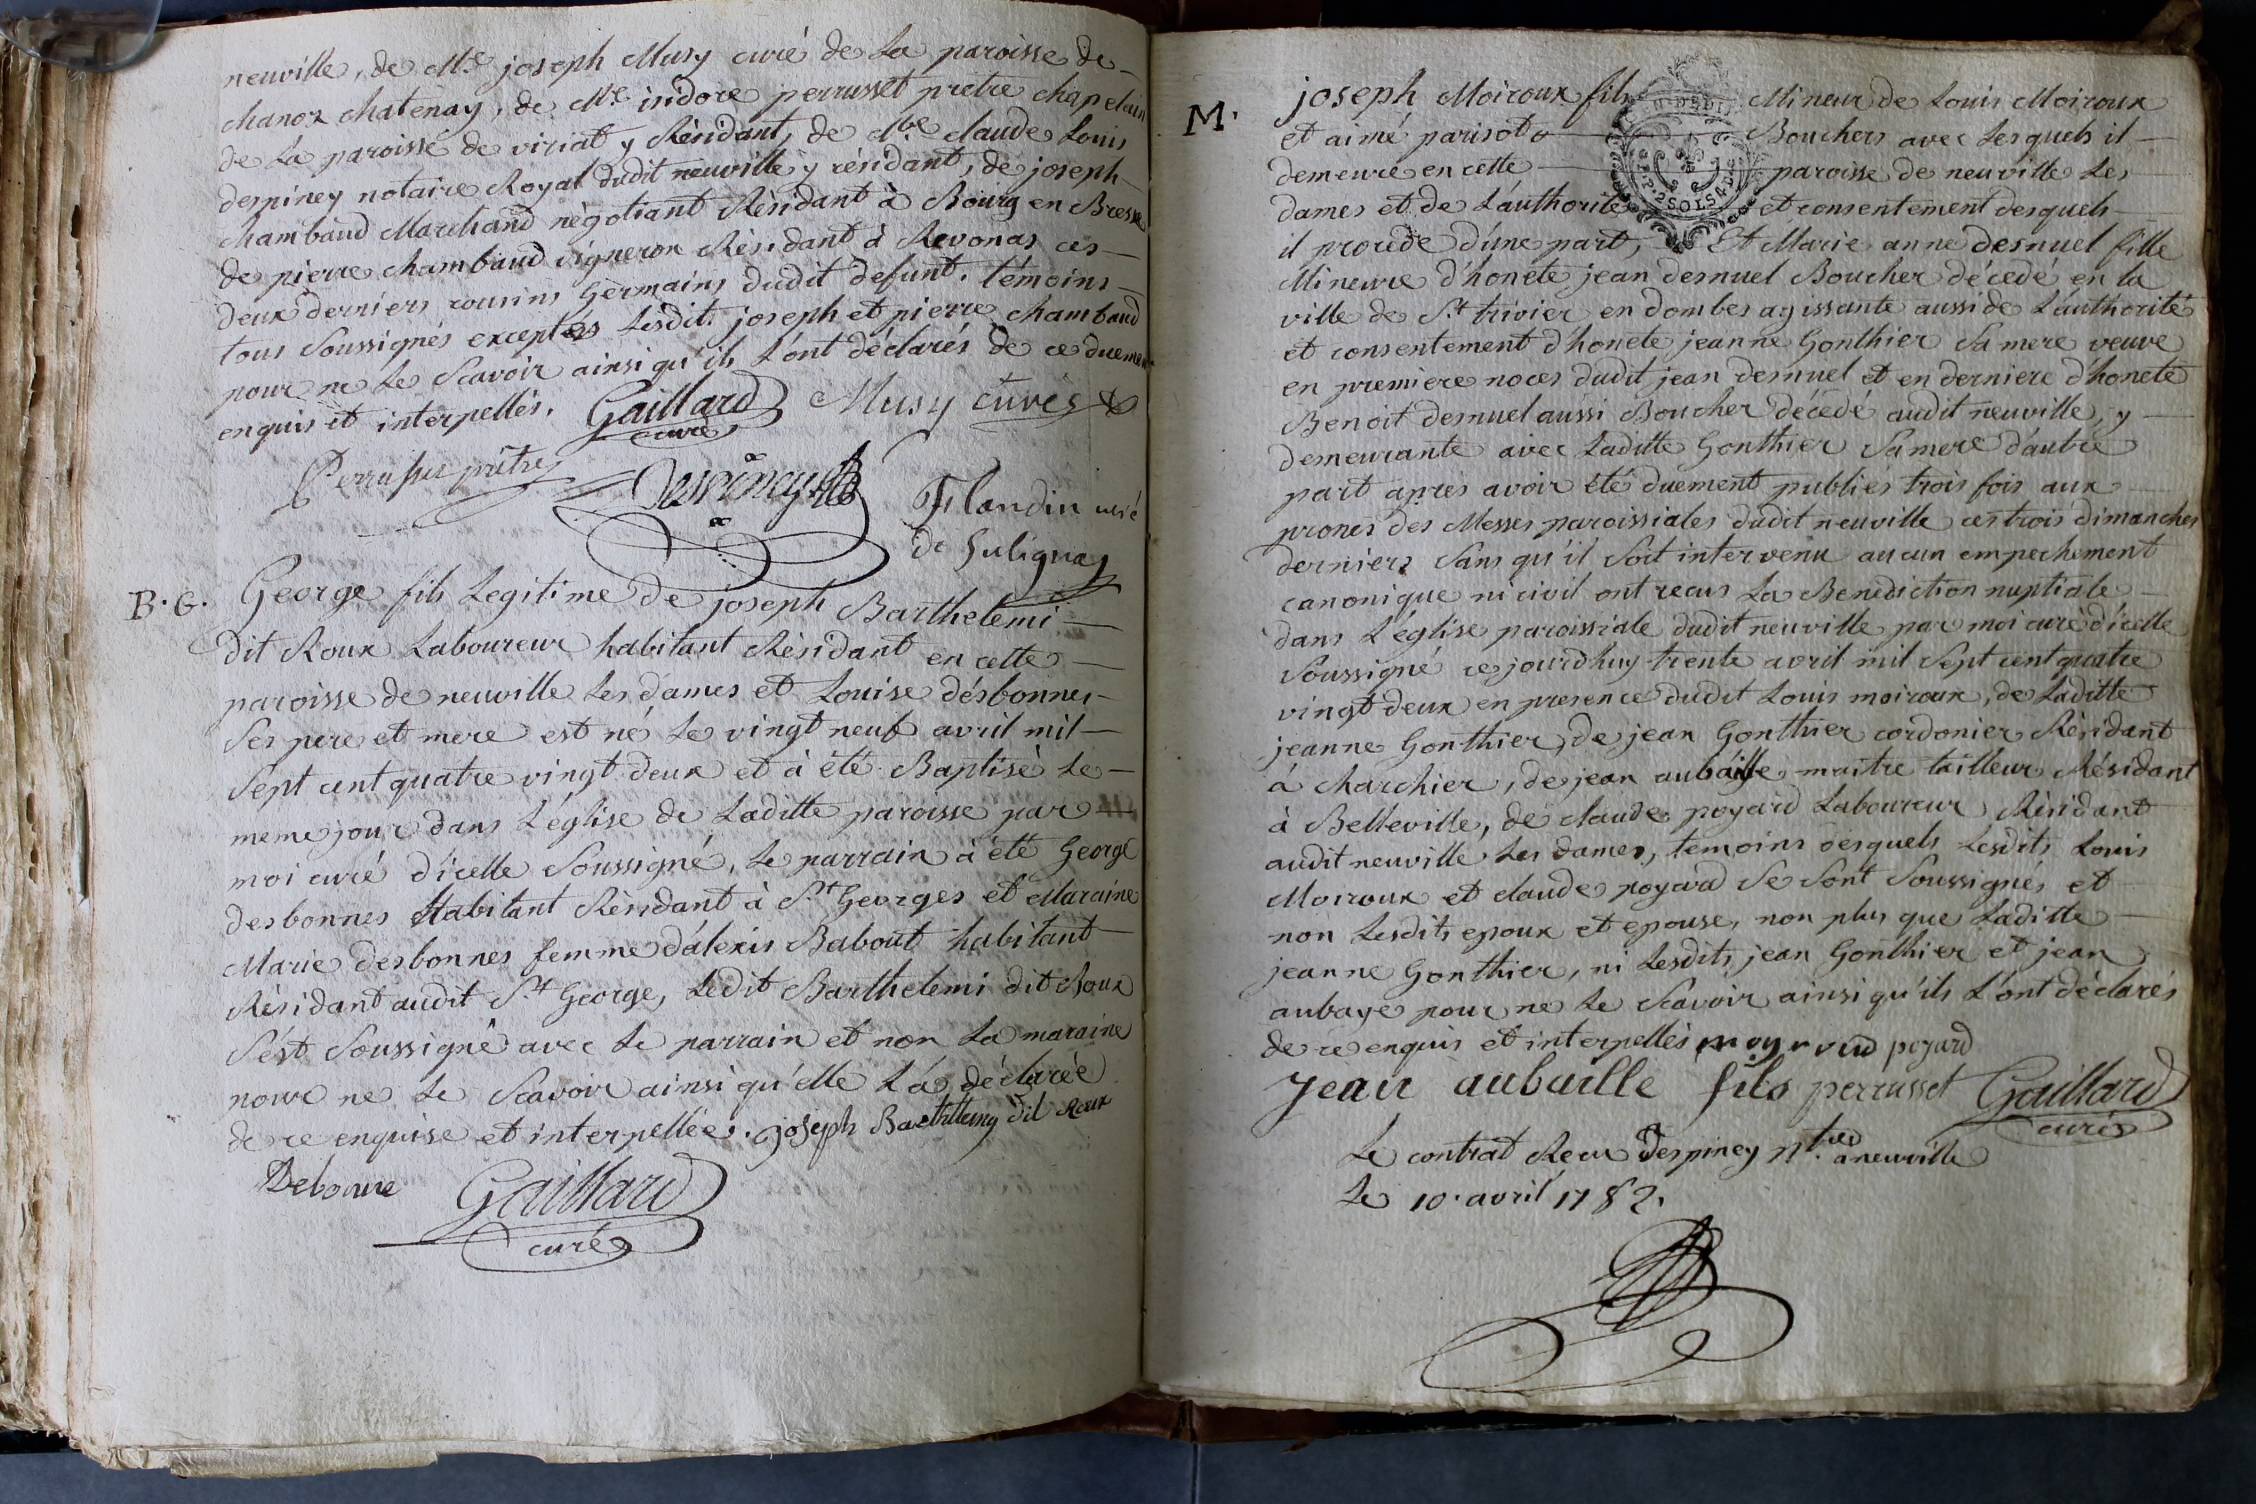 neuville, de M.e joseph Musy curé de La paroisse de
chanoz chatenay, de M.e isidore perrusset prêtre chapelain
de La paroisse de viriat y Résidant, de M.e claude Louis
despiney notaire Royal dudit neuville y résidant, de joseph
chambaud Marchand négotiant Résidant à Bourg en Bresse
de pierre chambaud vigneron Résidant à Revonas ces
deux derniers cousins Germains dudit defunt. témoins
tous Soussignés exceptés Lesdit. joseph et pierre chambaud
pour ne Le Scavoir ainsi qu'ils L'ont déclarés de ce duement
enquis et interpellés. Gaillard Musy curés
curé
Perrusset prêtre Despiney Flandin curé
de Suligna
B. G. George fils Legitime de joseph Barthelemi
dit Roux Laboureur habitant Résidant en cette
paroisse de neuville Les dames et Louise désbonnes
Ses pere et mere est né Le vingt neuf avril mil
Sept cent quatre vingt deux et à été Baptisé Le
meme jour dans L'église de Laditte paroisse par
moi curé d'icelle Soussigné, Le parrain à été George
desbonnes Habitant Résidant à S.t Georges et Maraine
Marie desbonnes femme d'alexis Babout habitant
Résidant audit S.t George, Ledit Barthelemi dit Roux
S'est Soussigné avec Le parrain et non La maraine
pour ne Le Scavoir ainsi qu'elle L'á déclarée
de ce enquise et interpellée. joseph Barthillemy dit Roux
Debonne Gaillard
curé
M. joseph Moiroux fils Mineur de Louis Moiroux
et aimé parisot Bouchers avec Lesquels il
demeure en cette paroisse de neuville Les
dames et de L'authorité et consentement desquels
2 SOLS 4 D
il procède d'une part, Et Marie anne desnuel fille
Mineure d'honete jean desnuel Boucher décedé en la
ville de S.t trivier en dombes agissante aussi de L'authorité
et consentement d'honete jeanne Gonthier Sa mere veuve
en premiere noces dudit jean desnuel et en derniere d'honete
Benoit desnuel aussi Boucher décedé audit neuville, y
demeurante avec Laditte Gonthier Sa mere d'autre
part après avoir été duement publiés trois fois aux
prones des Messes paroissiales dudit neuville ces trois dimanches
derniers Sans qu'il Soit intervenu aucun empechement
canonique ni civil ont recus La Benediction nuptiale
dans L'église paroissiale dudit neuville par moi curé d'icelle
Soussigné ce jourdhuy trente avril mil Sept cent quatre
vingt deux en presence dudit Louis moiroux, de Laditte
jeanne Gonthier, de jean Gonthier cordonier Résidant
á charchier, de jean aubaille maitre tailleur Résidant
à Belleville, de claude poyard Laboureur Résidant
audit neuville Les dames, temoins desquels Lesdits Louis
Moiroux et claude poyard Se Sont Soussignés et
non Lesdits epoux et epouse, non plus que Laditte
jeanne Gonthier, ni Lesdits jean Gonthier et jean
aubaye pour ne Le Scavoir ainsi qu'ils L'ont déclarés
de ce enquis et interpellés poyard
jean aubaille fils perrusset Gaillard
curé
Le contrat Recu Despiney N.re a neuville
Le 10. avril 1782.